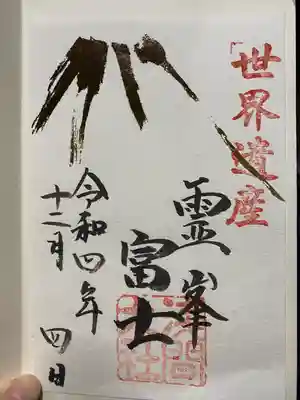 「世界遺産
霊峯
富士
令和四年
十二月 四日